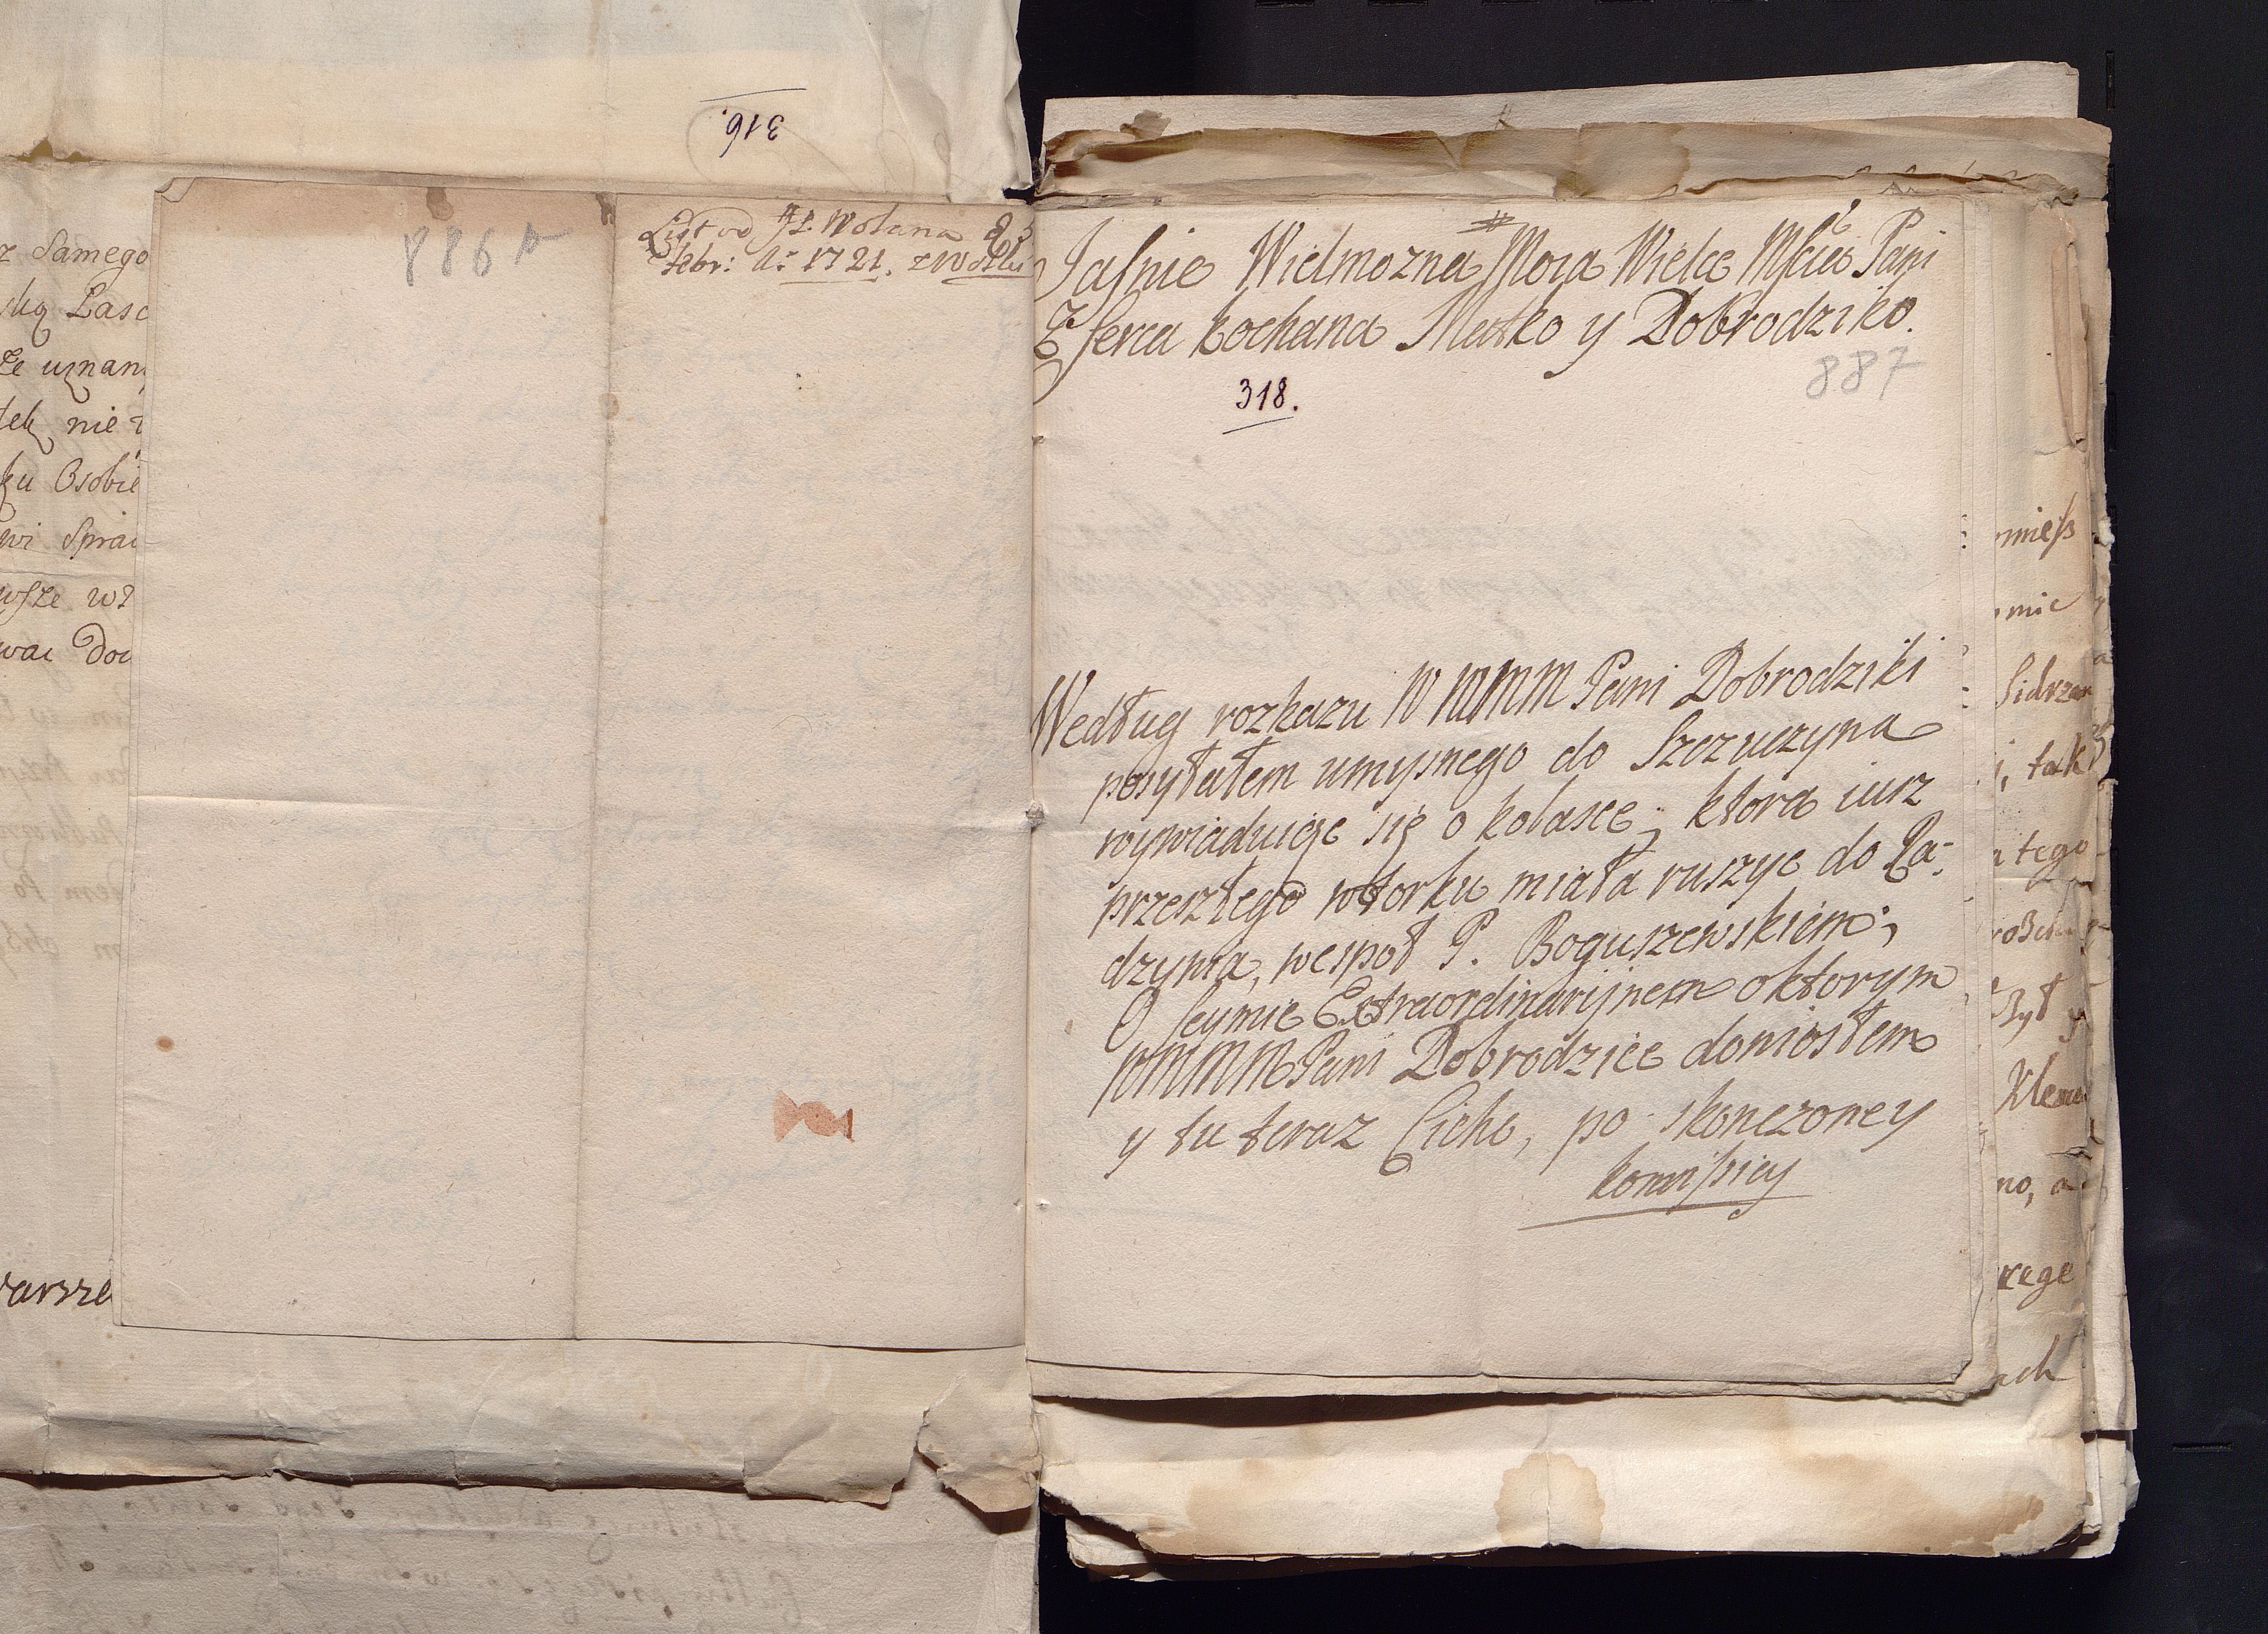 316.
z Samego
że uznan
tek nie
ku Osobie
wi Spra
wsze
886
List od JP. Wolana
Febr: Aº 1721.
Jasnie Wielmozna Moia Wielce Mscia Pani
Z serca kochana Matko y Dobrodziko.
887
318.
Według rozkazu W MMM Pani Dobrodziki
posyłałem umysnego do Szczuczyna
wywiaduiąc się o kolasce, ktora iusz
przeszłego wtorku miała ruszyc do Ra-
dzynia, wespoł P. Boguszewskiem,
O seymie Extraordinarijnem o ktorym
WMMM Pani Dobrodzice doniosłem
y tu teraz Cicho, po skonczoney
komissiey
mie
tak
tego
był y
no, a
ach